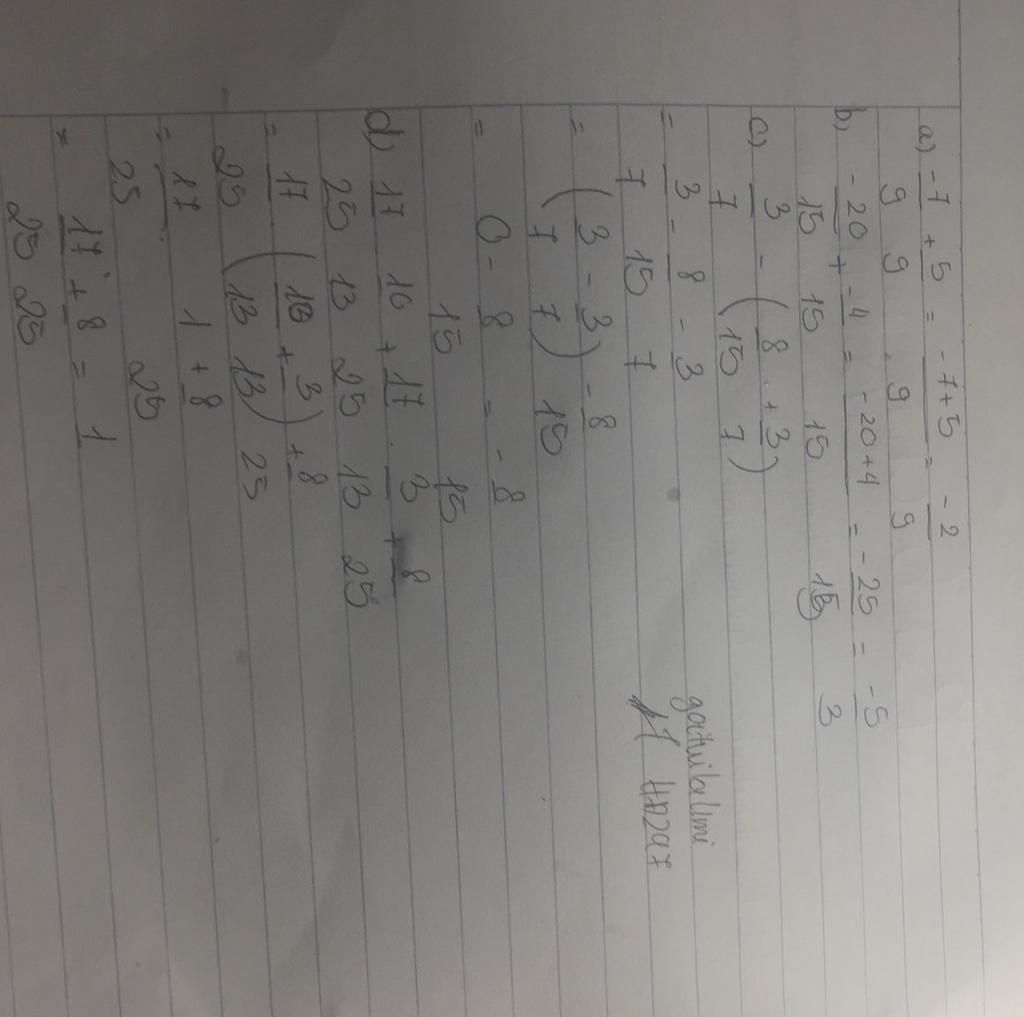 a) -7/9 + 5/9 = -7+5/9 = -2/9
b) -20/15 + -4/15 = -20+4/15 = -25/15 = -5/3
c) 3/7 - (8/15 + 3/7)
= 3/7 - 8/15 - 3/7
= (3/7 - 3/7) - 8/15
= 0 - 8/15 = - 8/15
d) 17/25 10/13 + 17/25 . 3/13 + 8/25
= 17/25 (10/13 + 3/13) + 8/25
= 17/25 . 1 + 8/25
= 17/25 + 8/25 = 1